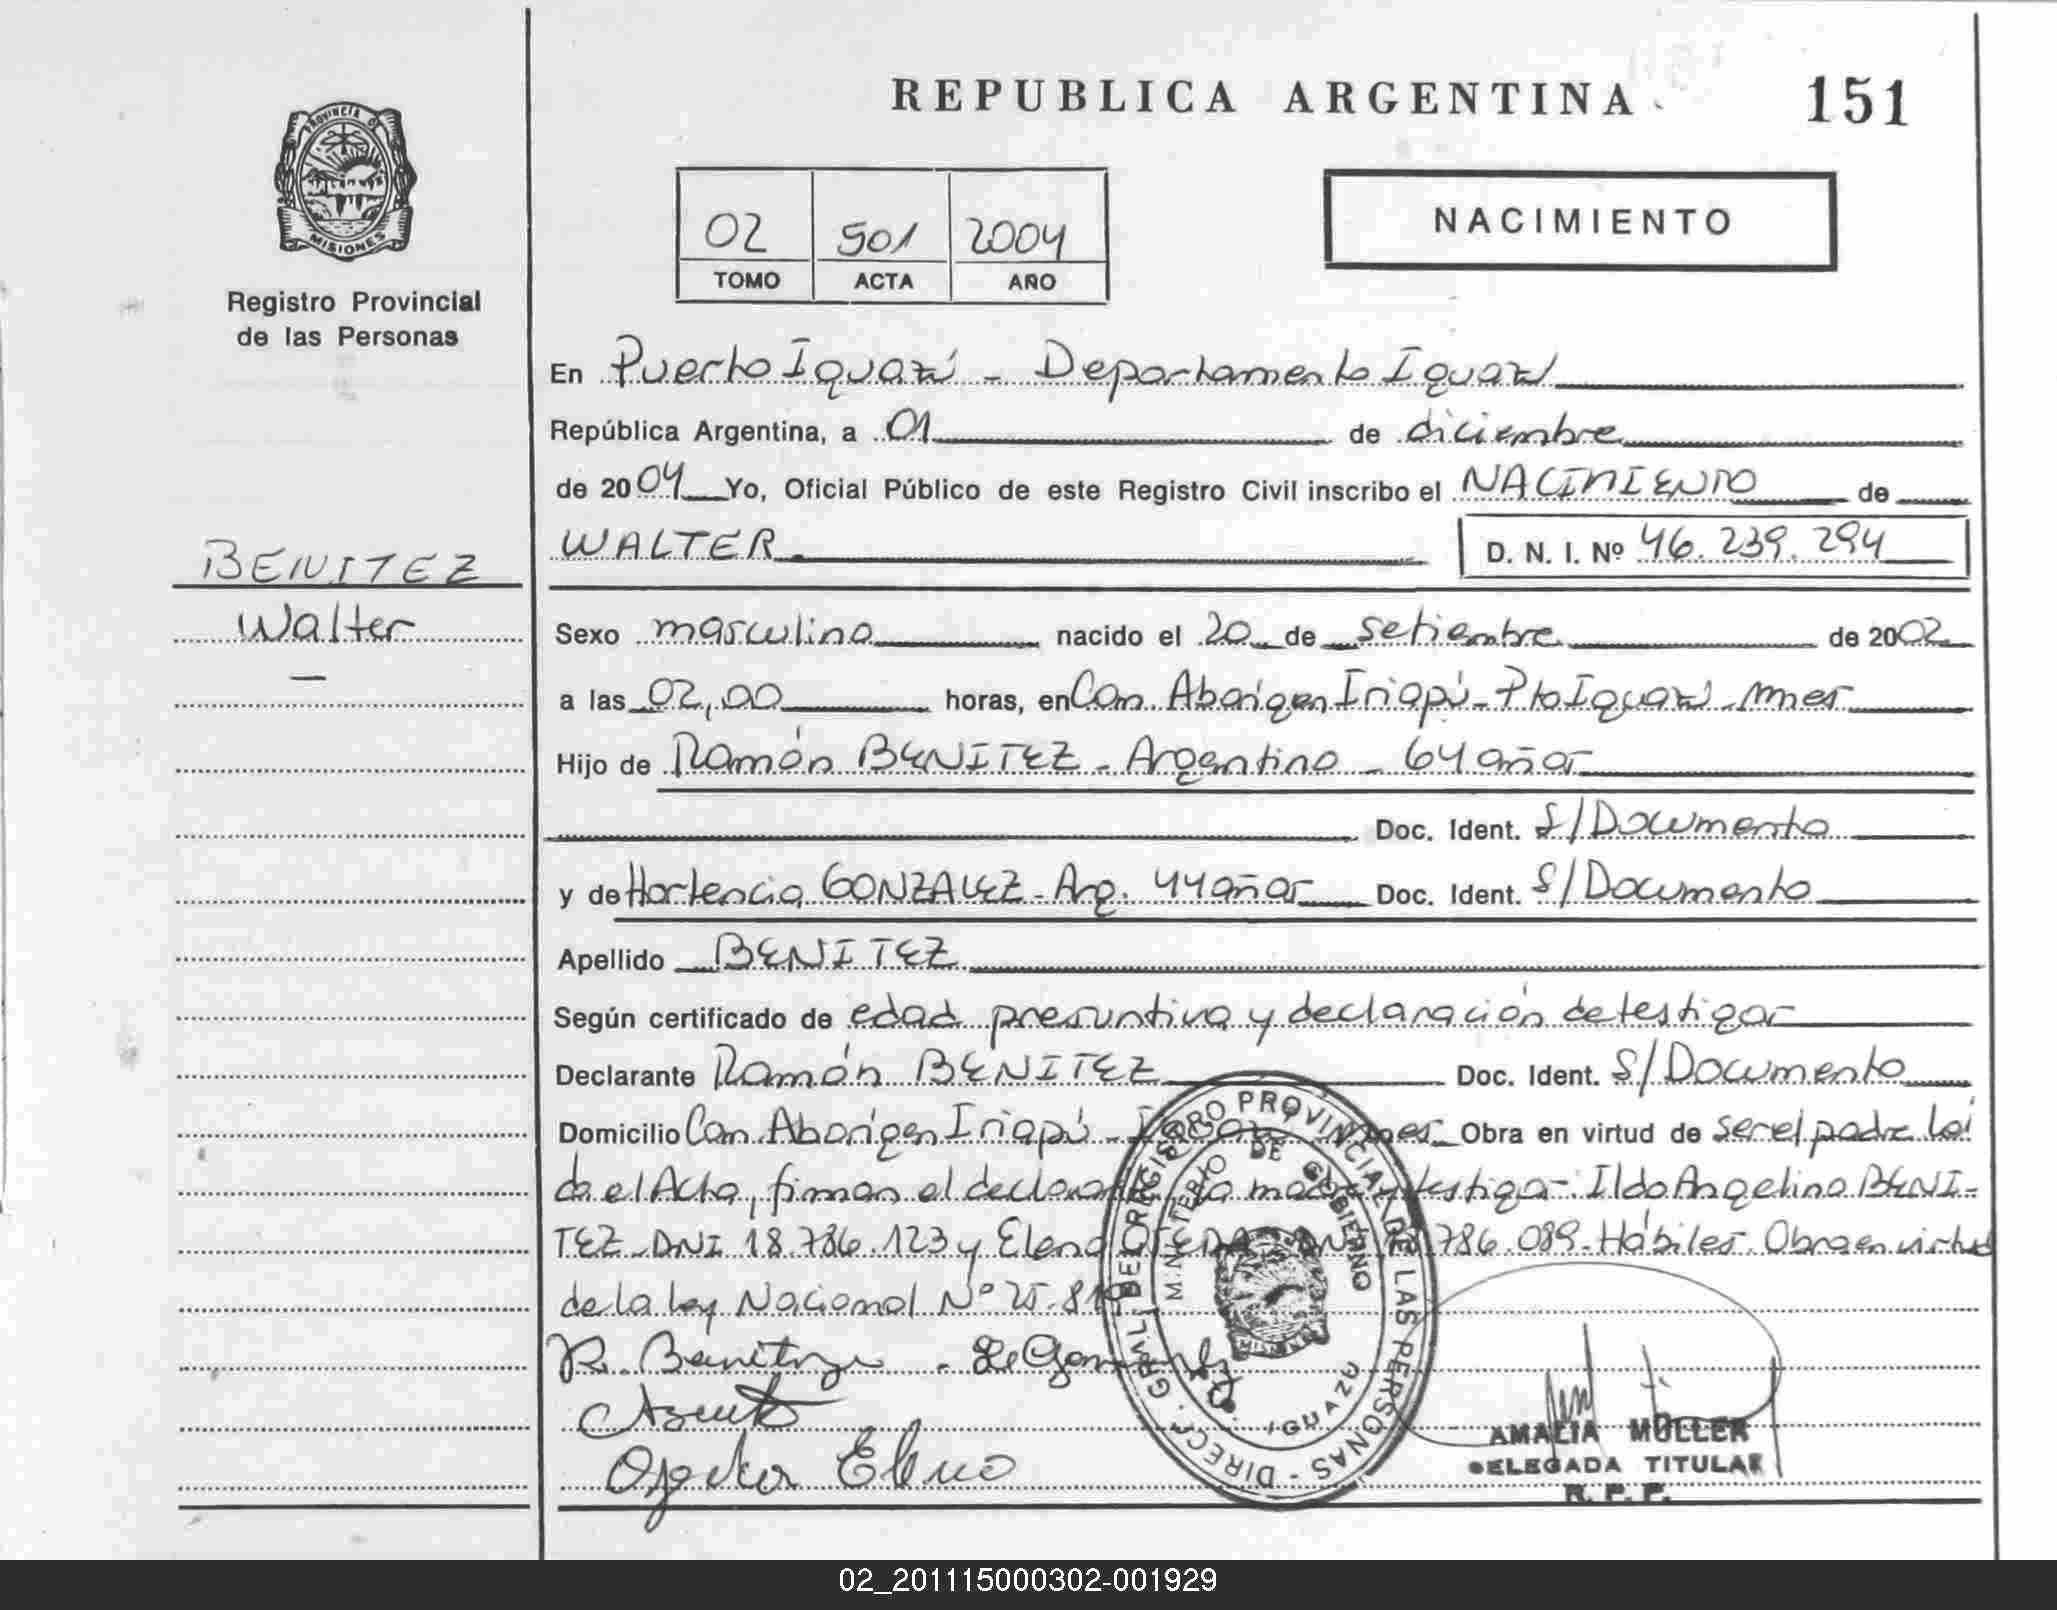 REPUBLICA ARGENTINA 151
PROVINCIA DE
MISIONES
Registro Provincial
de las Personas
02 501 2004
TOMO ACTA AÑO
NACIMIENTO
En Puerto Iguazú - Departamento Iguazú
República Argentina, a 01 de diciembre
de 2004 Yo, Oficial Público de este Registro Civil inscribo el NACIMIENTO de
WALTER D. N. I. Nº 46.239.294
BENITEZ
Walter
Sexo masculino nacido el 20 de setiembre de 2002
a las 02,00 horas, en Com. Aborigen Iriapú - Pto Iguazú - Mnes
Hijo de Ramón BENITEZ - Argentino - 64 años
Doc. Ident. S/Documento
y de Hortencia GONZALEZ - Arg. 44 años Doc. Ident. S/Documento
Apellido BENITEZ
Según certificado de edad presuntiva y declaración de testigos
Declarante Ramón BENITEZ Doc. Ident. S/Documento
Domicilio Com. Aborigen Iriapú - Mnes Obra en virtud de ser el padre Leí
da el Acta, firman el la testigos: Ildo Angelino BENI-
TEZ - DNI 18.786.123 y Elena 786.089 - Hábiles. Obra en virtud
de la ley Nacional Nº 25.819
R. Benitez
Elena
DIRECC. GRAL. DEL REGISTRO PROVINCIAL DE LAS PERSONAS
MINISTERIO DE GOBIERNO
IGUAZU
AMALIA MULLER
DELEGADA TITULAR
R. P. P.
02_201115000302-001929